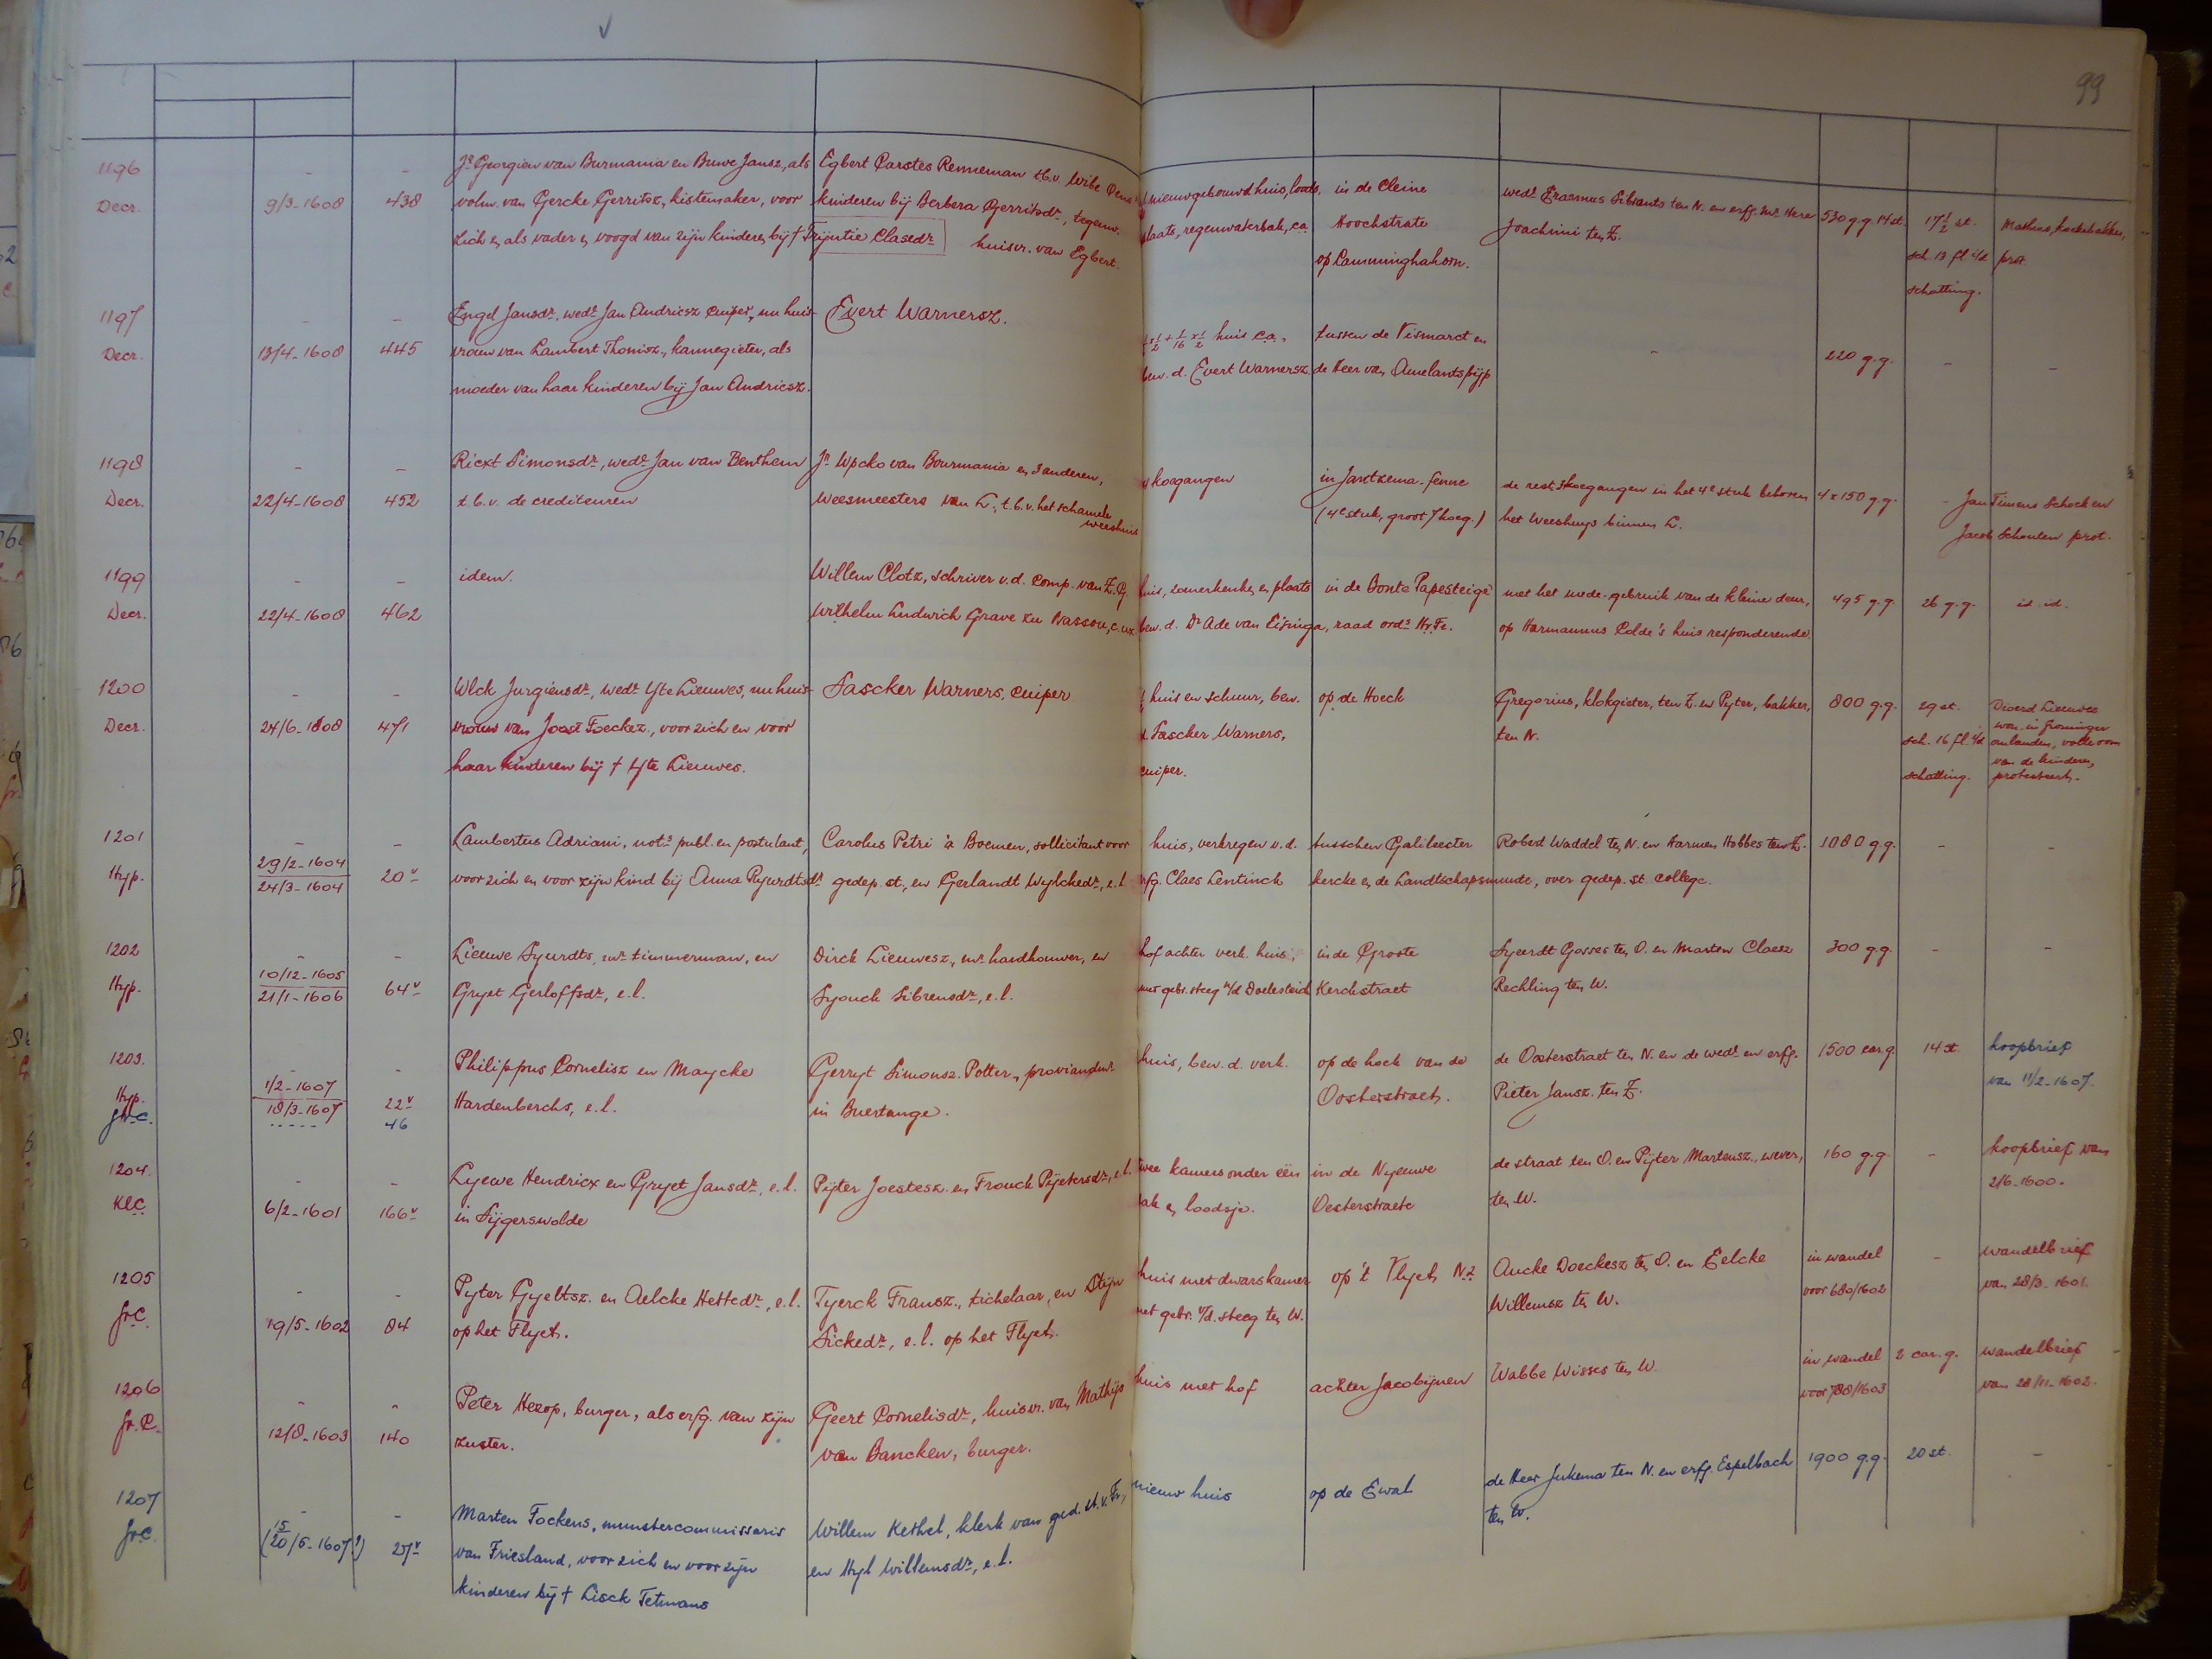 99
1196
Decr. 9/3-1608 438
Jr. Georgien van Burmania en Buwe Jansz, als
volm. van Gercke Gerritsz, kistemaker, voor
zich en als vader en voogd van zijn kinderen bij † Trijntie Clasedr.
Egbert Carstes Renneman t.b.v. Wibe
kinderen bij Berbera Gerritsdr., tegenw.
huisvr. van Egbert.
nieuwgebouwd huis, loods,
plaats, regenwaterbak, c.a.
in de Cleine
Hoochstrate
op Camminghahorn.
wedr. Erasmus Sibrants ten N. en erfg. Mr. Here
Joachimi ten Z.
530 g.g. 14 st.
17 1/2 st.
sch. 13 fl. i/d
schatting.
prot.
1197
Decr. 13/4-1608 445
Engel Jansdr., wedr. Jan Andriesz cuiper, nu huis-
vrouw van Lambert Thonisz., kannegieter, als
moeder van haar kinderen bij Jan Andriesz.
Evert Warnersz.
x 1/2 + 1/16 x 1/2 huis c.a.,
bew. d. Evert Warnersz.
tussen de Vismarct en
de Heer van Amelantspijp
220 g.g.
1198
Decr. 22/4-1608 452
Rixt Simonsdr., wedr. Jan van Benthem
t.b.v. de crediteuren
Jr. Wpcko van Bourmania en 3 anderen,
weesmeesters van L., t.b.v. het schamele
weeshuis
koegangen
in Jantzema-fenne
(4e stuk, groot 7 koeg.)
de rest. 3 koegangen in het 4e stuk behoren
het Weeshuys binnen L.
4 x 150 g.g.
Jan Timens Schock en
Jacob Schouten prot.
1199
Decr. 22/4-1608 462
idem.
Willem Clotz, schriver v.d. comp. van Z.G.
Wilhelm Ludwich Grave zu Nassou, c.ux.
huis, somerkeuken en plaats
bew. d. Dr. Ade van Eisinga, raad ords. Hv. Fr.
in de Bonte Papesteige
met het mede-gebruik van de kleine deur,
op Harmannus Colde's huis responderende.
495 g.g.
26 g.g.
id. id.
1200
Decr. 24/6-1608 471
Wlck Jurgiensdr., wedr. Ijte Lieuwes, nu huis-
vrouw van Joost Foeckez., voor zich en voor
haar kinderen bij † Ijte Lieuwes.
Sascker Warners, cuiper
huis en schuur, bew.
d. Sascker Warners,
cuiper.
op de Hoeck
Gregorius, klokgieter, ten Z. en Pyter, bakker,
ten N.
800 g.g.
29 st.
sch. 16 fl. i/d
schatting.
Dioerd Lieuwes
won. in Groninger
omlanden, volle oom
van de kinderen,
protesteert.
1201
Hyp. 29/2-1604
24/3-1604 20v
Lambertus Adriani, nots. publ. en postulant,
voor zich en voor zijn kind bij Anna Ryurdtsdr.
Carolus Petri à Boemen, sollicitant voor
gedep. st., en Gerlandt Wylckedr., e.l.
huis, verkregen v.d.
erfg. Claes Lentinck
tusschen Galileester
kercke en de Landtschapsmunte, over gedep. st. college.
Robert Waddel ten N. en Harmen Hobbes ten Z.
1080 g.g.
1202
Hyp. 10/12-1605
21/1-1606 64v
Lieuwe Sjurdts, mr. timmerman, en
Gryet Gerloffsdr., e.l.
Dirck Lieuwesz., mr. hardhouwer, en
Syouck Sibrensdr., e.l.
hof achter verk. huis,
met gebr. steeg n/d Doelesteich
in de Groote
Kerckstraet
Syeerdt Gosses ten O. en Marten Claesz
Rechling ten W.
300 g.g.
1203.
Hyp. 1/2-1607
18/3-1607 22v
Gr.C. 46
Philippus Cornelisz en Maycke
Hardenberchs, e.l.
Gerryt Simonsz. Potter, proviandmr.
in Buertange.
huis, bew. d. verk.
op de hoek van de
Oosterstraet.
de Oosterstraet ten N. en de wedr. en erfg.
Pieter Jansz. ten Z.
1500 car.g.
14 st.
koopbrief
van 11/2-1607.
1204.
Kl.C. 6/2-1601 166v
Lyewe Hendricx en Gryet Jansdr., e.l.
in Sijgerswolde
Pijter Joestesz. en Frouck Pijetersdr., e.l.
twee kamers onder één
dak en loodsje.
in de Nyeuwe
Oesterstraete
de straat ten O. en Pijter Martensz., wever,
ten W.
160 g.g.
koopbrief van
2/6-1600.
1205
Gr.C. 19/5-1602 84
Pyter Gyeltsz. en Aelcke Hettedr., e.l.
op het Flyet.
Tyerck Fransz., tichelaar, en Stijn
Sickedr., e.l. op het Flyet.
huis met dwarskamer
met gebr. v/d. steeg ten W.
op 't Vlyet N.Z.
Aucke Doeckesz ten O. en Eelcke
Willemsz ten W.
in wandel
voor 680/1602
wandelbrief
van 28/3-1601.
1206
Gr.C. 12/8-1603 140
Peter Hexop, burger, als erfg. van zijn
zuster.
Geert Cornelisdr., huisvr. van Mathijs
van Bancken, burger.
huis met hof
achter Jacobijnen
Wabbe Wisses ten W.
in wandel
voor 788/1603
2 car.g.
wandelbrief
van 28/11-1602.
1207
Gr.C. (15/20/5-1607?) 27v
Marten Fockens, munstercommissaris
van Friesland, voor zich en voor zijn
kinderen bij † Lisck Tetmans
Willem Kethel, klerk van ged. st. v. Fr.,
en Hyl Willemsdr., e.l.
nieuw huis
op de Ewal
de Heer Jukema ten N. en erfg. Espelbach
ten W.
1900 g.g.
20 st.